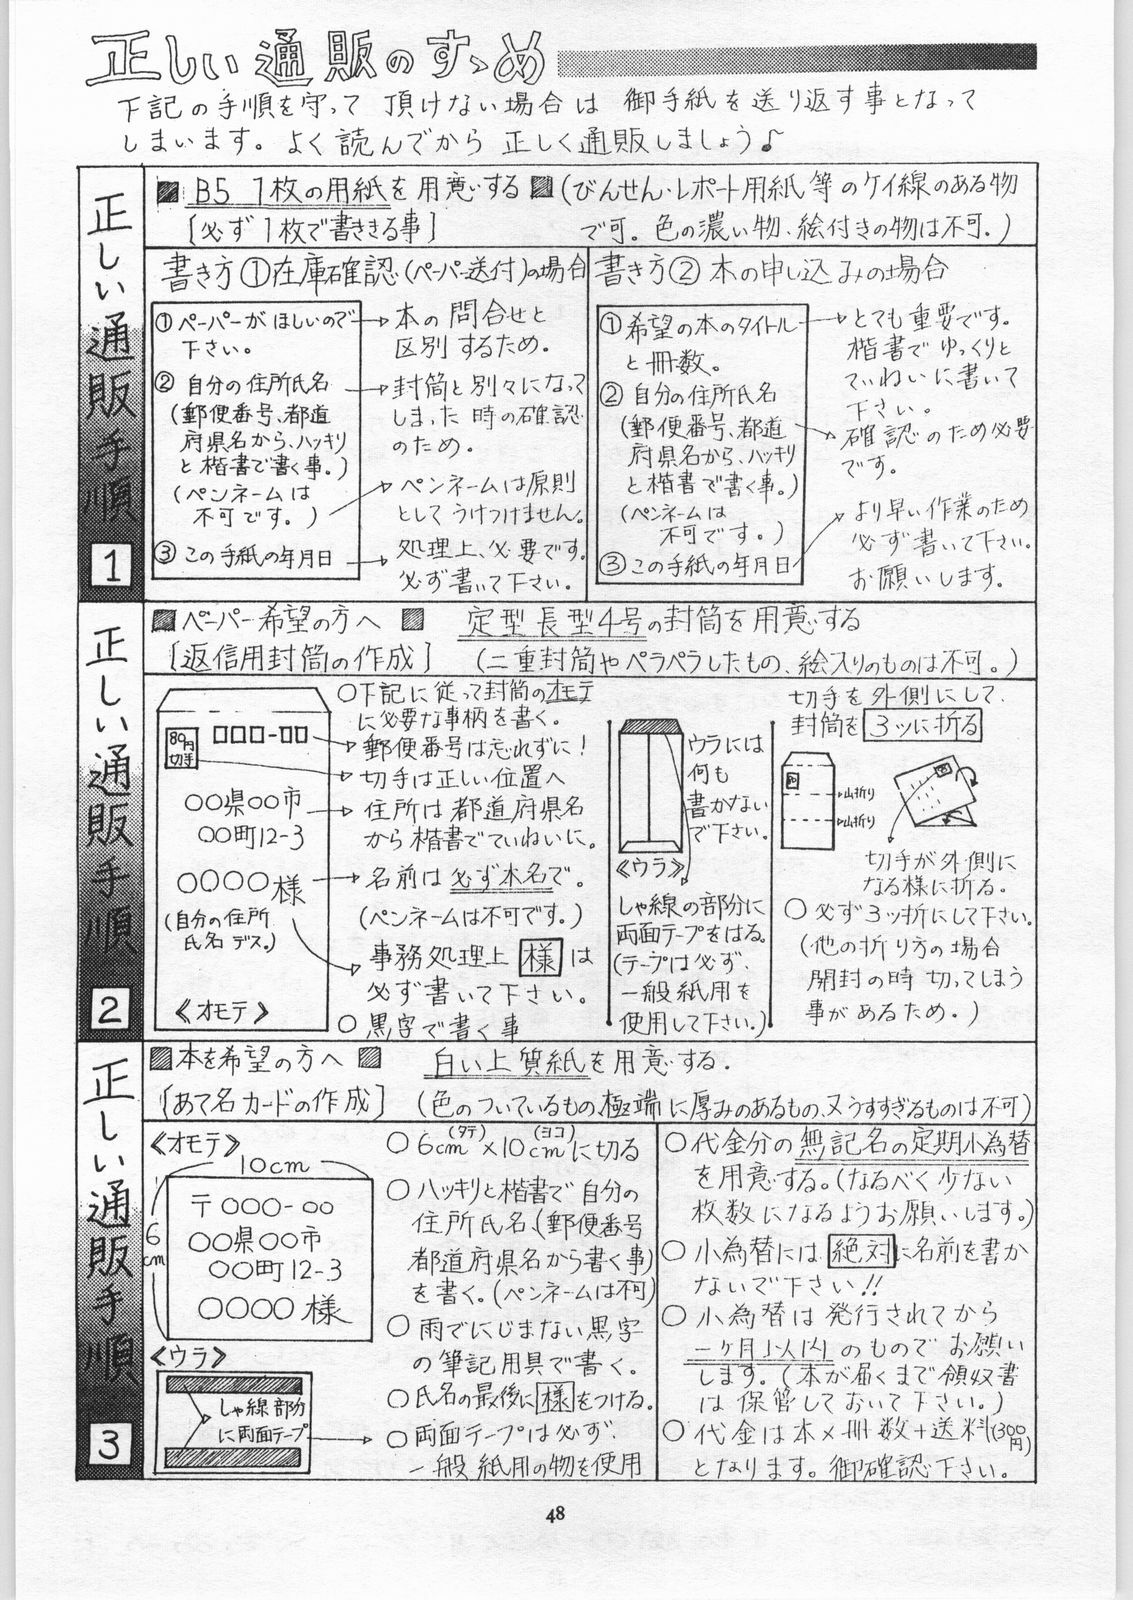 正しい通販のすゝめ
下記の手順を守って 頂けない場合は 御手紙を送り返す事となって
しまいます。よく読んでから 正しく通販しましょう♪
正しい通販手順 1
■ B5 1枚の用紙を用意する ■ (びんせん・レポート用紙等のケイ線のある物
[必ず1枚で書ききる事]
で可。色の濃い物、絵付きの物は不可。)
書き方①在庫確認(ペーパー送付)の場合
①ペーパーがほしいので
下さい。
→本の問合せと
区別するため。
②自分の住所氏名
(郵便番号、都道
府県名から、ハッキリ
と楷書で書く事。)
→封筒と別々になって
しまった時の確認
のため。
(ペンネームは
不可です。)
→ペンネームは原則
としてうけつけません。
③この手紙の年月日
→処理上、必要です。
必ず書いて下さい。
書き方② 本の申し込みの場合
①希望の本のタイトル
と冊数。
→とても重要です。
楷書でゆっくりと
ていねいに書いて
下さい。
②自分の住所氏名
(郵便番号、都道
府県名から、ハッキリ
と楷書で書く事。)
(ペンネームは
不可です。)
→確認のため必要
です。
③この手紙の年月日
→より早い作業のため
必ず書いて下さい。
お願いします。
正しい通販手順 2
■ペーパー希望の方へ ■ 定型長型4号の封筒を用意する
[返信用封筒の作成] (二重封筒やペラペラしたもの、絵入りのものは不可。)
80円
切手
□□□-□□
○○県○○市
○○町12-3
○○○○様
(自分の住所
氏名デス。)
《オモテ》
○下記に従って封筒のオモテ
に必要な事柄を書く。
→郵便番号は忘れずに!
→切手は正しい位置へ
→住所は都道府県名
から楷書でていねいに。
→名前は必ず本名で。
(ペンネームは不可です。)
事務処理上 様 は
必ず書いて下さい。
○黒字で書く事
ウラには
何も
書かない
で下さい。
《ウラ》
しゃ線の部分に
両面テープをはる。
(テープは必ず、
一般紙用を
使用して下さい。)
切手を外側にして、
封筒を 3ッに折る
80
→山折り
→山折り
切手が外側に
なる様に折る。
○必ず3ッ折にして下さい。
(他の折り方の場合
開封の時切ってしまう
事があるため。)
正しい通販手順 3
■本を希望の方へ ■ 白い上質紙を用意する.
[あて名カードの作成] (色のついているもの、極端に厚みのあるもの、又うすすぎるものは不可)
《オモテ》
10cm
6cm
〒○○○-○○
○○県○○市
○○町12-3
○○○○様
《ウラ》
しゃ線部分
に両面テープ
○6cm(タテ)×10cm(ヨコ)に切る
○ハッキリと楷書で自分の
住所氏名(郵便番号
都道府県名から書く事)
を書く。(ペンネームは不可)
○雨でにじまない黒字
の筆記用具で書く。
○氏名の最後に様をつける。
○両面テープは必ず、
一般紙用の物を使用
○代金分の無記名の定期小為替
を用意する。(なるべく少ない
枚数になるようお願いします。)
○小為替には 絶対 に名前を書か
ないで下さい!!
○小為替は発行されてから
一ヶ月以内のものでお願い
します。(本が届くまで領収書
は保管しておいて下さい。)
○代金は本×冊数+送料(300円)
となります。御確認下さい。
48